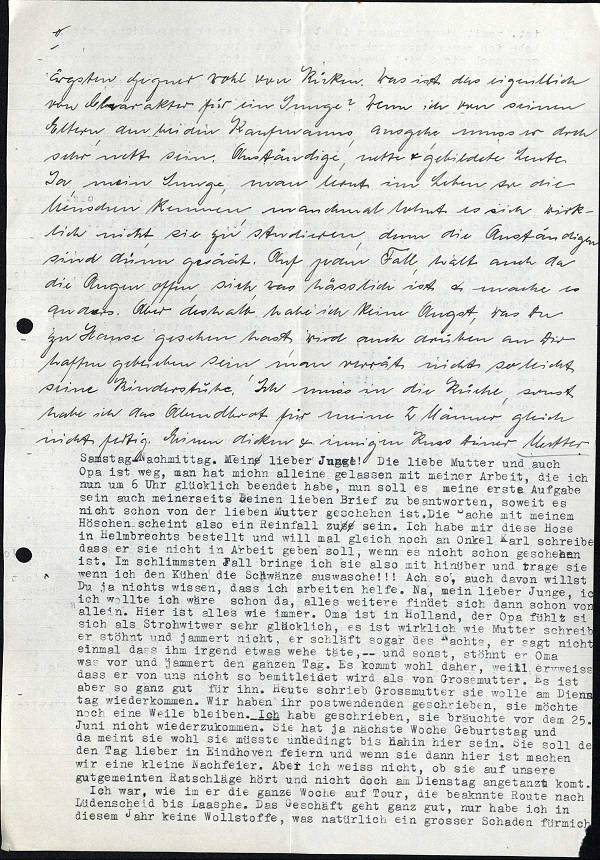 ärgsten Gegner wohl von Kirken. Was ist das eigentlich
von Charakter für ein Junge? Wenn ich von seinen
Eltern, den beiden Kaufmanns, ausgehe muss er doch
sehr nett sein. Anständige, nette & gebildete Leute.
Ja, mein Junge, man lernt im Leben so die
Menschen kennen, manchmal lohnt es sich wirk-
lich nicht sie zu studieren, denn die Anständigen
sind dünn gesäät. Auf jeden Fall, halt auch da
die Augen offen, sieh, was hässlich ist & mache es
anders. Aber deshalb habe ich keine Angst, was Du
zu Hause gesehen hast, wird auch drüben an Dir
haften geblieben sein, man verrät nicht so leicht
seine Kinderstube. Ich muss in die Küche, sonst
habe ich das Abendbrot für meine 2 Männer gleich
nicht fertig. Einen dicken & innigen Kuss Deiner Mutter
Samstag Nachmittag. Meine lieber Junge! Die liebe Mutter und auch
Opa ist weg, man hat michn alleine gelassen mit meiner Arbeit, die ich
nun um 6 Uhr glücklich beendet habe, nun soll es meine erste Aufgabe
sein auch meinerseits Deinen lieben Brief zu beantworten, soweit es
nicht schon von der lieben Mutter geschehen ist.Die ache mit meinem
Höschen scheint also ein Reinfall zu sein. Ich habe mir diese Hose
in Helmbrechts bestellt und will mal gleich noch an Onkel Karl schreibe
dass er sie nicht in Arbeit geben soll, wenn es nicht schon geschehen
ist. Im schlimmsten Fall bringe ich sie also mit hinüber und trage sie
wenn ich den Kühen die Schwänze auswasche!!! Ach so, auch davon willst
Du ja nichts wissen, dass ich arbeiten helfe. Na, mein lieber Junge, ic
ich wollte ich wäre schon da, alles weitere findet sich dann schon von
allein. Hier ist alles wie immer. Oma ist in Holland, der Opa fühlt si
sich als Strohwitwer sehr glücklich, es ist wirklich wie Mutter schreib
er stöhnt und jammert nicht, er schläft sogar des Nachts, er sagt nicht
einmal dass ihm irgend etwas wehe täte,-- und sonst, stöhnt er Oma
was vor und jammert den ganzen Tag. Es kommt wohl daher, weill erwweiss
dass er von uns nicht so bemitleidet wird als von Grossmutter. Es ist
aber so ganz gut für ihn. Heute schrieb Grossmutter sie wolle am Diens
tag wiederkommen. Wir haben ihr postwendenden geschrieben, sie möchte
noch eine Weile bleiben. Ich habe geschrieben, sie bräuchte vor dem 25.
Juni nicht wiederzukommen. Sie hat ja nächste Woche Geburtstag und
da meint sie wohl sie müsste unbedingt bis dahin hier sein. Sie soll de
den Tag lieber in Eindhoven feiern und wenn sie dann hier ist machen
wir eine kleine Nachfeier. Aber ich weiss nicht, ob sie auf unsere
gutgemeinten Ratschläge hört und nicht doch am Dienstag angetanzt komt.
Ich war, wie im er die ganze Woche auf Tour, die beaknnte Route nach
Lüdenscheid bis Laasphe. Das Geschäft geht ganz gut, nur habe ich in
diesem Jahr keine Wollstoffe, was natürlich ein grosser Schaden fürmich